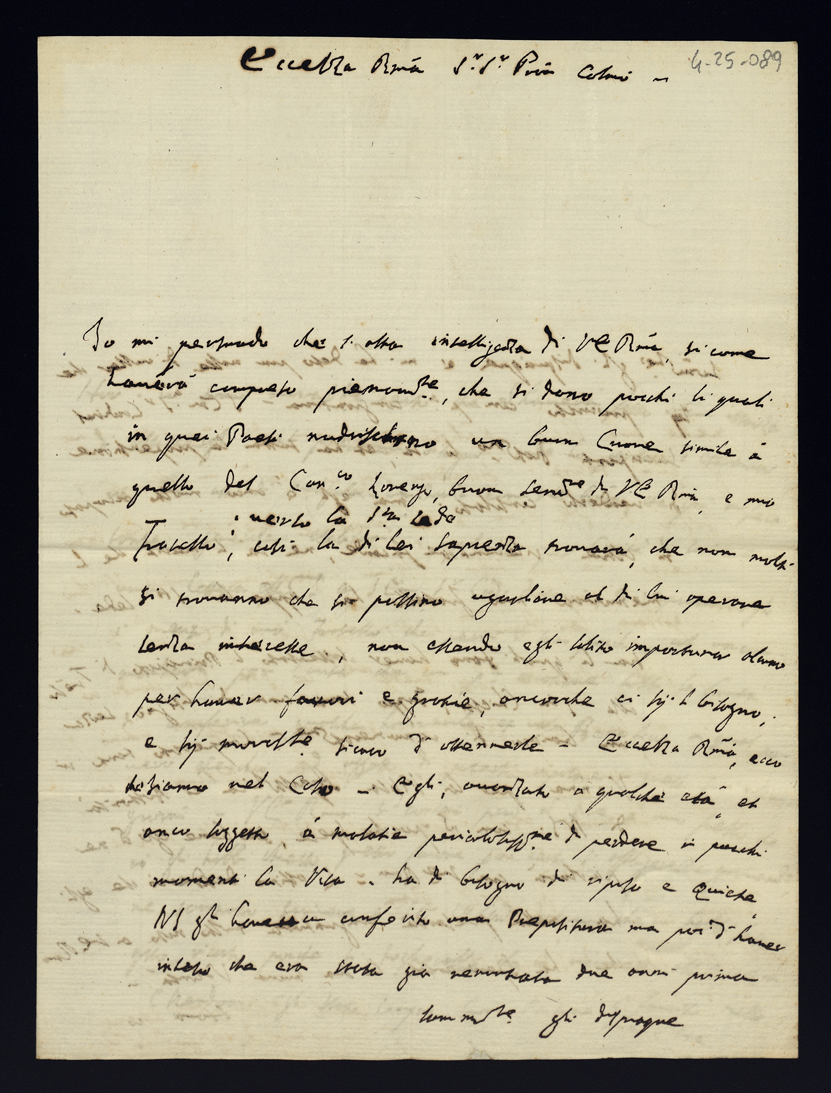 Eccellza Rma Sr. Sr. Prõn Colmo
4-25-089
Io mi persuado che l'alta intelligenza di VE Rma, si come
haverà compreso pienamte, che si dano pochi li quali
in quei Paesi nudriscono un buon Cuore simile à
quello del Canco Lorenzo, buon Servre di VE Rma, e mio
verso la Sta Sede
Fratello, così la di lei sapienza trovarà, che non molti
si trovanno che si possino uguagliare al di lui operare
senza interesse, non essendo egli solito importunar alcuno
per haver favori e grazie, ancorche ci sij il bisogno,
e sij moralmte sicuro d'ottennerle - Eccellza Rma, ecco
siamo nel Caso - Egli, avanzato a qualche età, et
anco soggetto à malatie pericolosissme di perdere in pochi
momenti la Vita - ha di bisogno di riposo e Quiete
NS gli haveva conferito una Prepositura ma poi d'haver
inteso che era stata già renuntiata due anni prima
sommte gli dispiaque